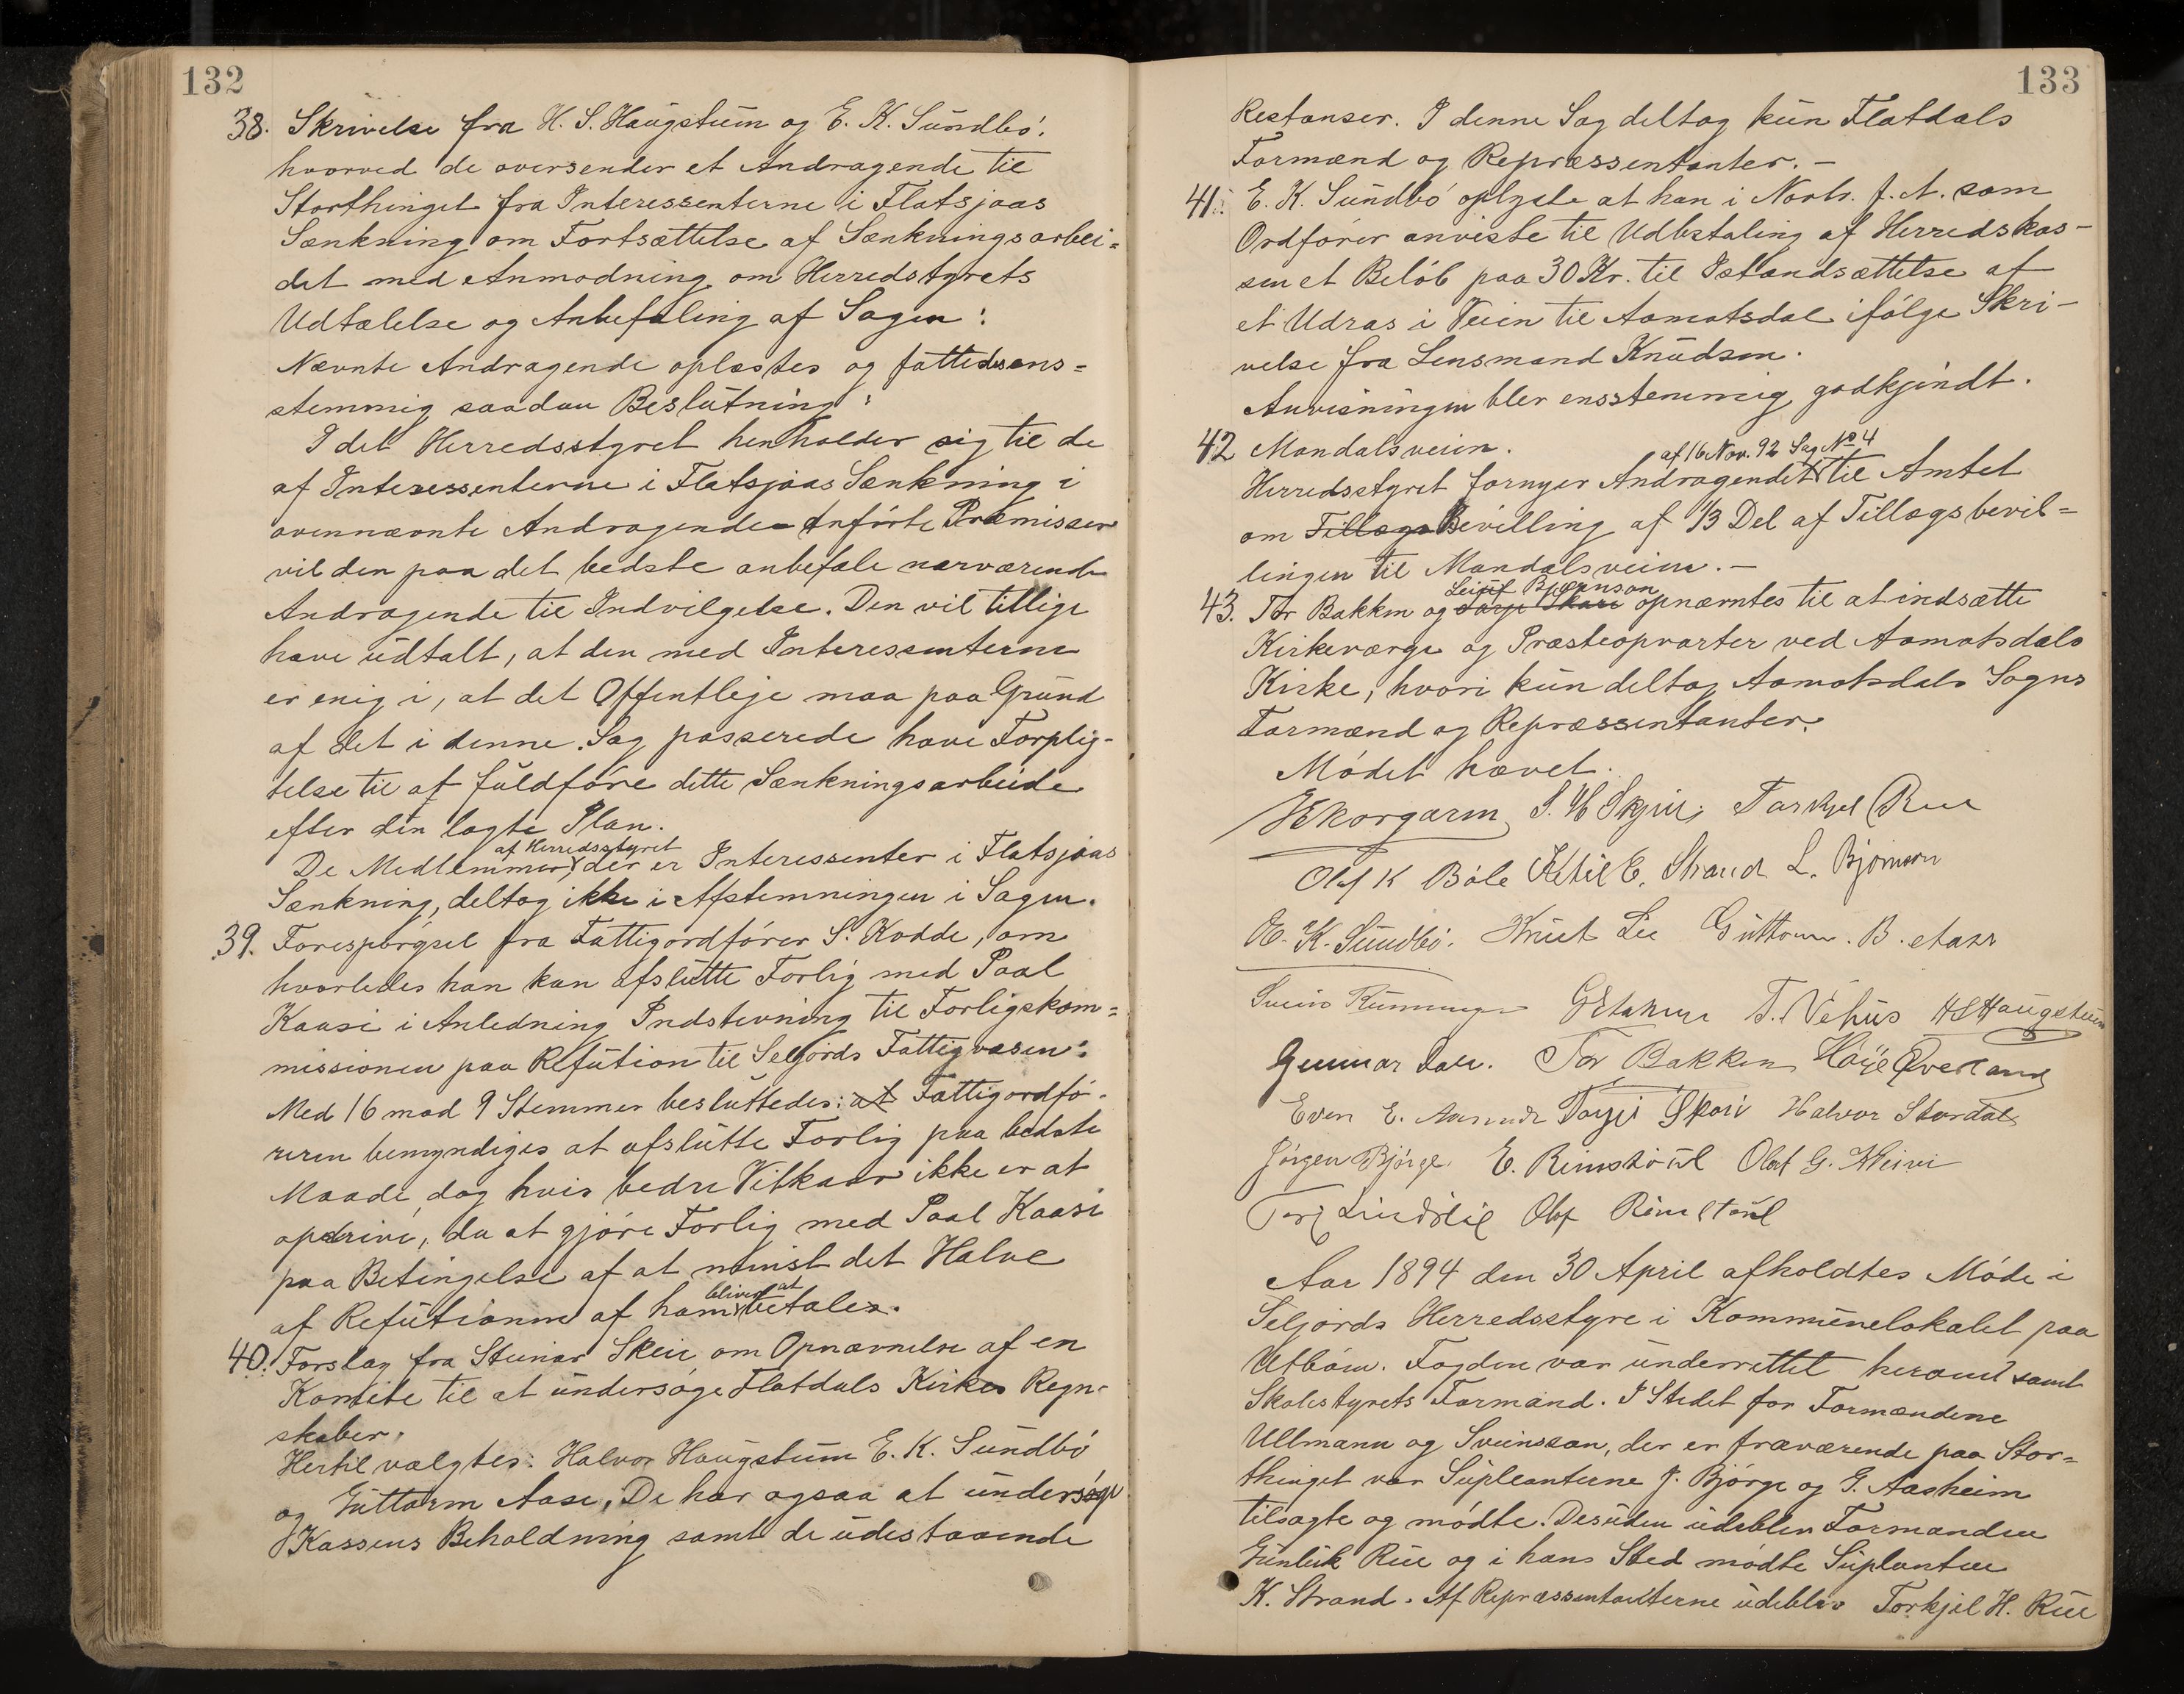 132
38. Skrivelse fra H. S. Haugstum og E. K. Sundbö.
hvorved de oversender et Andragende til
Storthinget fra Interessenterne i Flatsjaas
Sænkning om Fortsættelse af Sænkningsarbei=
det med Anmodning om Herredstyrets
Udtalelse og Anbefaling af Sagen:
Nævnte Andragende oplæstes og fattedes ens=
stemmig saadan Beslutning:
I det Herredsstyret henholder sig til de
af Interessenterne i Flatsjaas Sænkning i
ovennævnte Andragende anförte Præmisser
vil den paa det bedste anbefale nærværende
Andragende til Indvilgelse. Den vil tillige
have udtalt, at den med Interessenterne
er enig i, at det Offentlige maa paa Grund
af det i denne Sag passerede have Forplig-
telse til at fuldföre dette Sænkningsarbeide
efter den lagte Plan.
af Herredsstyret
De Medlemmer, der er Interessenter i Flatsjaas
Sænkning, deltog ikke i Afstemningen i Sagen.
39. Forespörgsel fra Fattigordförer S. Kodde, om
hvorledes han kan afslutte Forlig med Paal
Kaasi i Anledning Indstevning til Forligskom=
missionen paa Refution til Seljords Fattigvæsen:
Med 16 mod 9 Stemmer besluttedes: at Fattigordfö-
reren bemyndiges at afslutte Forlig paa bedste
Maade, dog hvis bedre Vilkaar ikke er at
opdrive, da at gjöre Forlig med Paal Kaasi
paa Betingelse af at minst det Halve
bliver at
af Refutionen af ham betales.
40. Forslag fra Steinar Skeie om Opnævnelse af en
Komite til at undersöge Flatdals Kirkes Regn-
skaber.
Hertil valgtes: Halvor Haugstum E. K. Sundbö
og Guttorm Aase. De har ogsaa at undersöge
Kassens Beholdning samt de udestaaende
133
Restanser. I denne Sag deltog kun Flatdals
Formænd og Repræssentanter. –
41. E. K. Sundbö oplyste at han i Novbr. f. A. som
Ordförer anviste til Udbetaling af Herredskas-
sen et Belöb paa 30 Kr. til Istandsættelse af
et Udras i Veien til Aamotsdal ifölge Skri-
velse fra Lensmand Knudsen.
Anvisningen blev ensstemmig godkjendt.
42 Mandalsveien.
af 16 Nov. 92 Sag No 4
Herredsstyret fornyer Andragendet til Amtet
om Tillægs Bevilling af 1/3 Del af Tillægsbevil=
lingen til Mandalsveien. –
Leiuf Bjørnson
43. Tor Bakken og Torje Skare opnævntes til at indsætte
Kirkeværge og Præsteopvarter ved Aamotsdals
Kirke, hvori kun deltog Aamotsdals Sogns
Formænd og Repræssentanter.
Mödet hævet.
S. H. Skjeie, Torkjel Rue
Olaf K Böle Ketil E. Strand L. Björnson
E. K. Sundbö. Knut Lie Guttorm. B. Aase
T. Nehus HS Haugstum
Gunnar Dale. Tor Bakken Höije Överland
Even E. Torjei Skori Halvor Stordal
Jörgen Björge. E. Rimstöül Olaf G. Kleivi
Olaf Rimstöül
Aar 1894 den 30 April afholdtes Möde i
Seljords Herredsstyre i Kommunelokalet paa
Utböen. Fogden var underrettet herom samt
Skolestyrets Formand. I Stedet for Formændene
Ullmann og Sveinsson, der er fraværende paa Stor=
thinget var Supleanterne J. Björge og G. Aasheim
tilsagte og mödte. Desuden udeblev Formanden
Gunleik Rue og i hans Sted mödte Suplanten
K. Strand. Af Repræssentanterne udeblev Torkjel H. Rue